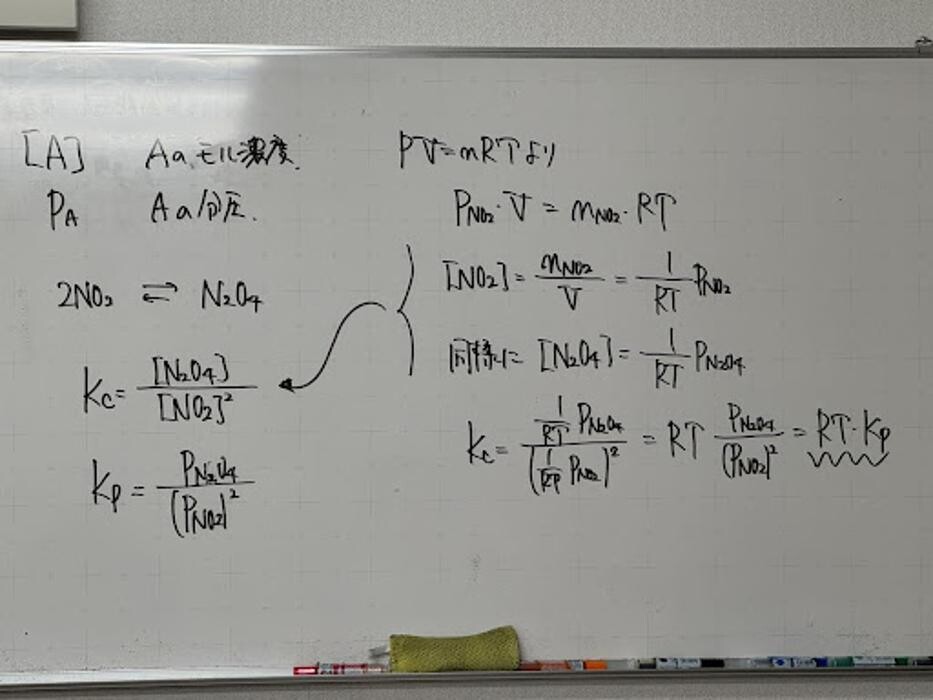 [A] Aのモル濃度.
P_A Aの分圧.
2NO₂ ⇄ N₂O₄
Kc = [N₂O₄] / [NO₂]²
Kp = P_N₂O₄ / (P_NO₂)²
PV=nRTより
P_NO₂・V = n_NO₂・RT
[NO₂] = n_NO₂ / V = 1/RT P_NO₂
同様に [N₂O₄] = 1/RT P_N₂O₄
Kc = (1/RT P_N₂O₄) / (1/RP P_NO₂)² = RT P_N₂O₄ / (P_NO₂)² = RT・Kp